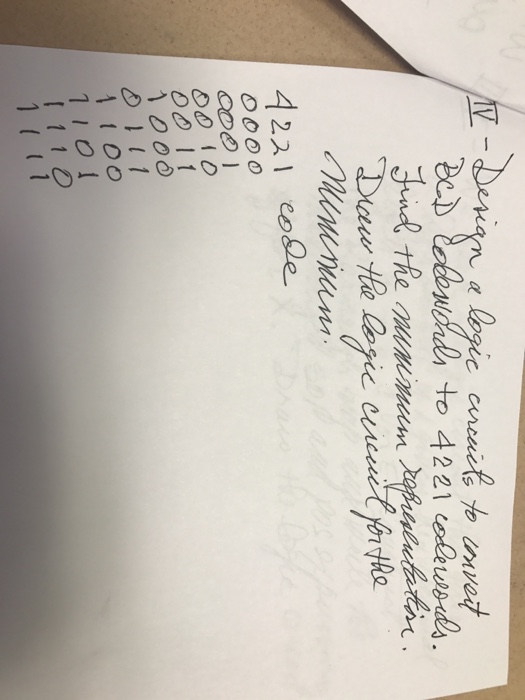 IV - Design a logic circuits to convert
BCD Codewords to 4221 codewords.
Find the minimum representation.
Draw the logic circuit for the
Minimum.
4221 code
0000
0001
0010
0011
1000
0111
1100
1101
1110
1111